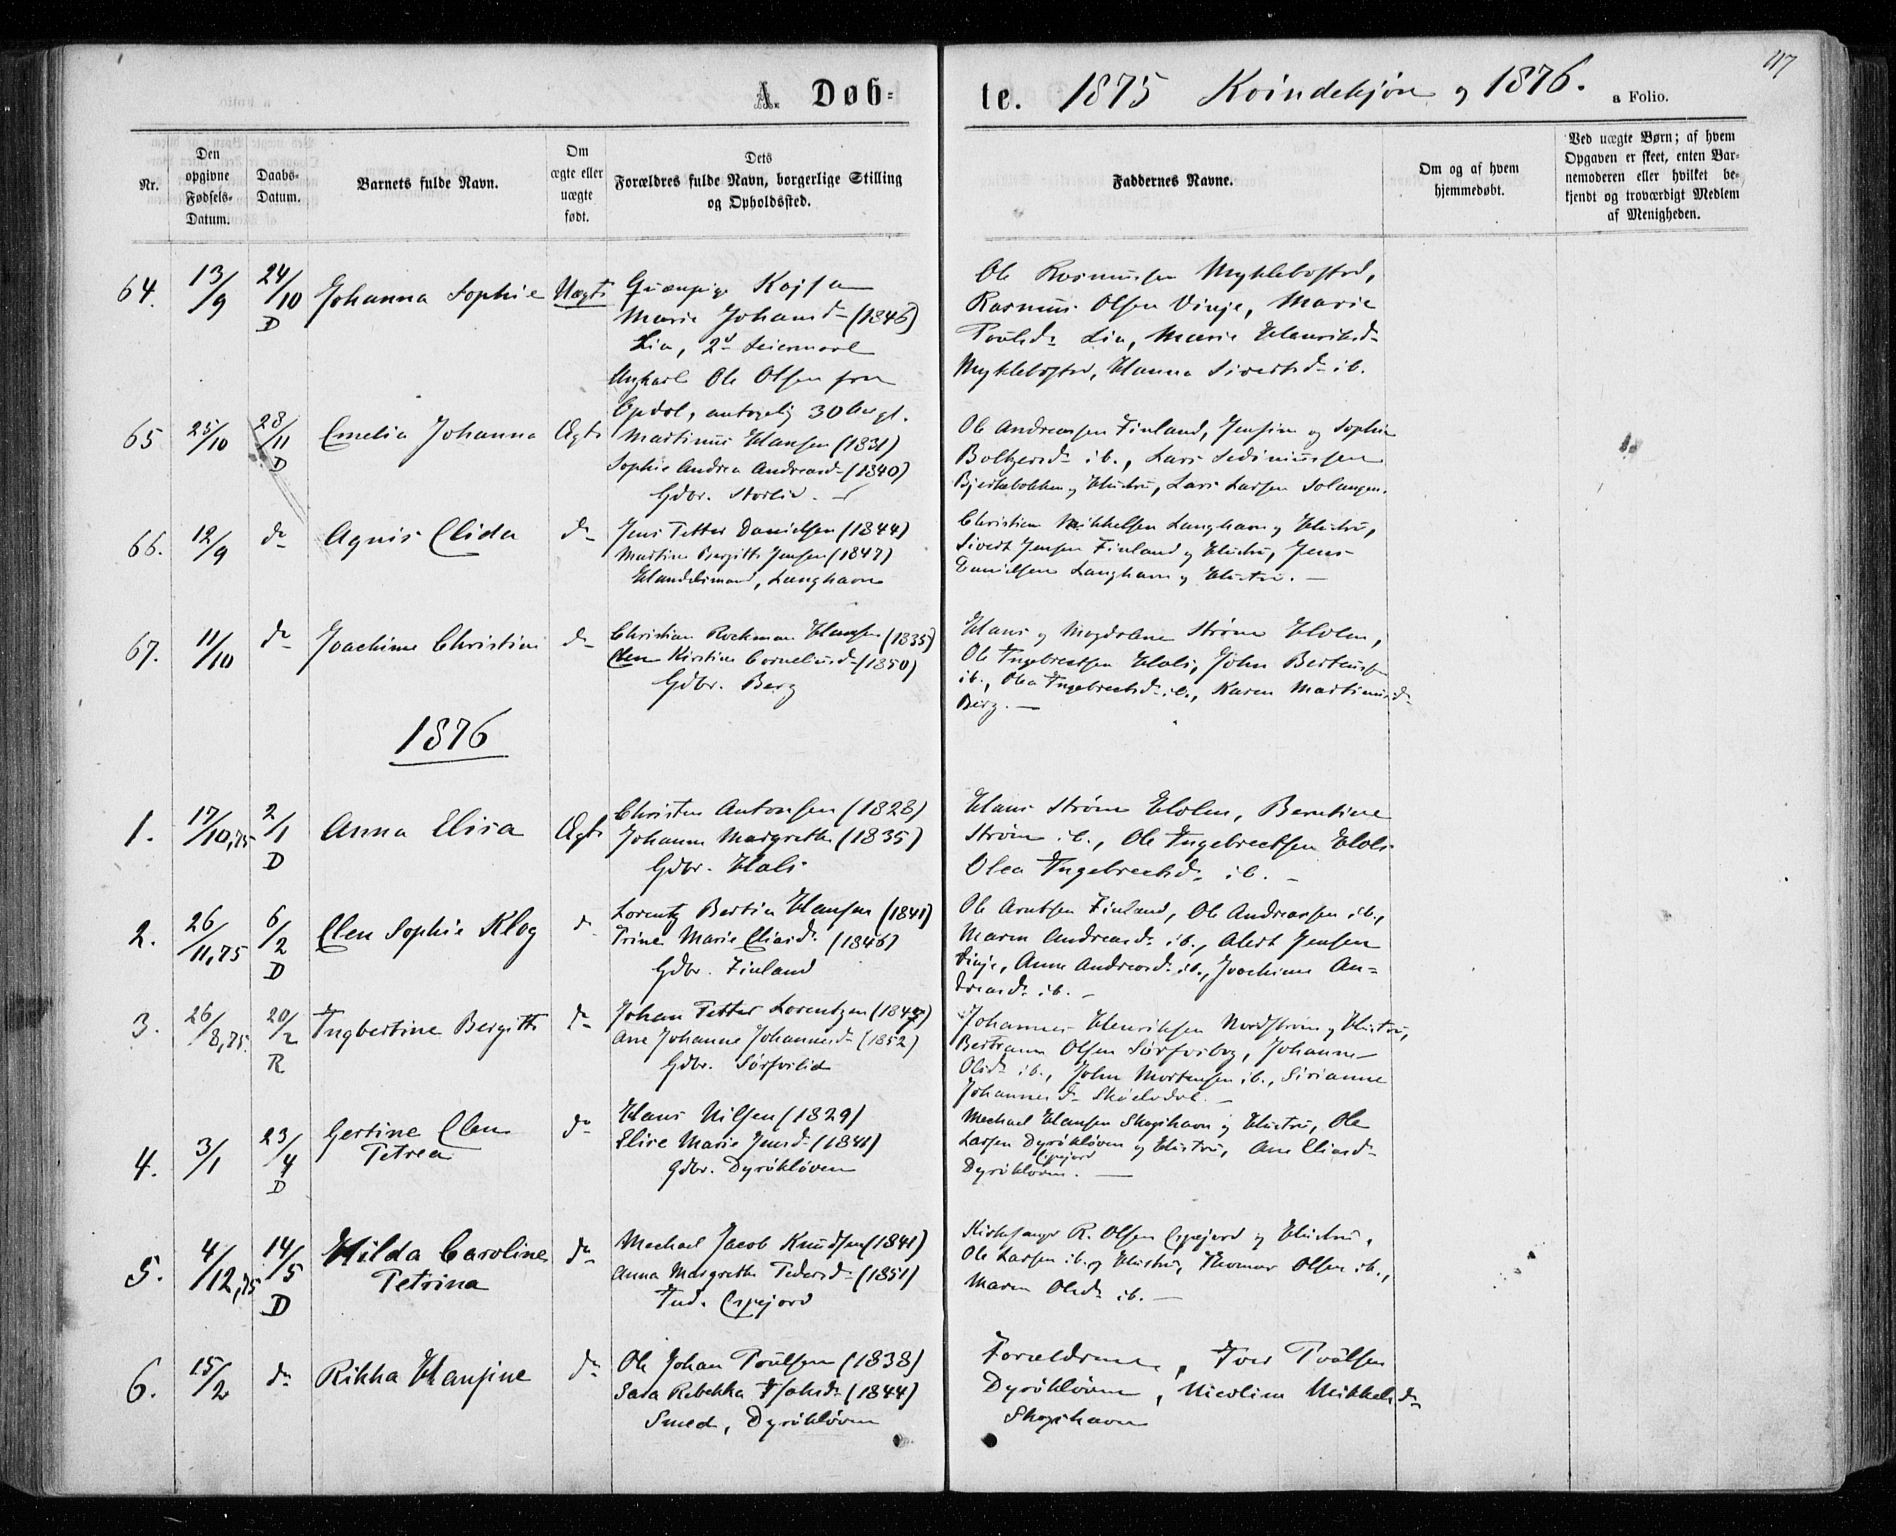 117
A. Døb-
te. 1875 Kvindekjøn og 1876. a Folio.
Nr.
Den opgivne Fødsels-Datum.
Daabs-Datum.
Barnets fulde Navn.
Om ægte eller uægte født.
Dets Forældres fulde Navn, borgerlige Stilling og Opholdssted.
Faddernes Navne.
Om og af hvem hjemmedøbt.
Ved uægte Børn; af hvem Opgaven er skeet, enten Barnemoderen eller hvilket bekjendt og troværdigt Medlem af Menigheden.
64. 13/9 24/10 D Johanna Sophie Uægte
Qvænpige Kajsa
Marie Johansd. (1846)
Lia, 2d Leiermaal
Ungkarl Ole Olsen fra
Opdal, antagelig 30 Aar gl.
Ole Rasmussen Myklebostad,
Rasmus Olsen Vinje, Marie
Poulsd. Lia, Marie Henriksd.
Myklebostad, Hanna Sivertsd. ib.
65 25/10 28/11 D Emelia Johanna Ægte
Martinus Hansen (1831)
Sophie Andrea Andreasd. (1840)
Gdbr. Storlid.
Ole Andreassen Finland, Jensine og Sophie
Boltzersd. ib., Lars Sediniussen
Bjerkebakken og Hustru, Lars Larsen Solangen.
66. 12/9 do Agnis Elida do
Jens Petter Danielsen (1844)
Martine Bergitte Jensen (1847)
Handelsmand, Langhavn
Christian Mikkelsen Langhavn og Hustru,
Sivert Jensen Finland og Hustru, Jens
Danielsen Langhavn og Hustru.
67. 11/10 do Joachime Christine do
Christian Rochman Hansen (1835)
Elen Kirstine Corneliusd. (1850)
Gdbr. Berg
Hans og Magdalena Strøm Holm,
Ole Ingebrectsen Hals, John Berteussen
ib., Olea Ingebrectsd. ib., Karen Martinusd.
Berg.
1876
1. 17/10,75 2/1 D Anna Elisa Ægte
Christen Antonsen (1828)
Johanna Margrethe (1835)
Gdbr. Hals
Hans Strøm Holm, Berntine
Strøm ib., Ole Ingebrectsen Hals
Olea Ingebrectsd. ib.
2. 26/11,75 6/2 D Elen Sophie Klog do
Lorentz Bertin Hansen (1841)
Trine Marie Eliasd. (1846)
Gdbr. Finland
Ole Arntsen Finland, Ole Andreassen ib.,
Maren Andreasd. ib., Abert Jensen
Vinje, Anne Andreasd. ib., Joachime An-
dreasd. ib.
3. 26/8,75. 20/2 R Ingbertine Bergitte do
Johan Petter Lorentzen (1847)
Ane Johanne Johannesd. (1852)
Gdbr. Sørfvilid
Johannes Henriksen Nordstrøm og Hustru,
Bertram Olsen Sørforbog, Johanne
Olsd. ib., John Mortensen ib., Sirianne
Johannesd. Skøelvdal.
4. 3/1 23/4 D Gertine Elen Petrea do
Hans Nilsen (1829)
Elise Marie Jensd. (1841)
Gdbr. Dyrøkløven
Mechael Hansen Skogshavn og Hustru, Ole
Larsen Dyrøkløven og Hustru, Ane Eliasd.
Espejord
Dyrøkløven.
5. 4/12,75 14/5 D Hilda Caroline Petrina do
Mechael Jacob Knudsen (1841)
Anna Margrethe Pedersd. (1851)
Ind. Espejord
Kirkesanger R. Olsen Espejord og Hustru,
Ole Larsen ib. og Hustru, Thomas Olsen ib.,
Maren Olsd. ib.
6. 15/2 do Rikka Hansine do
Ole Johan Poulsen (1838)
Sara Rebekka Isaksd. (1844)
Smed, Dyrøkløven
Forældrene, Iver Poulsen
Dyrøkløven, Nicoline Mikkelsd.
Skogshavn